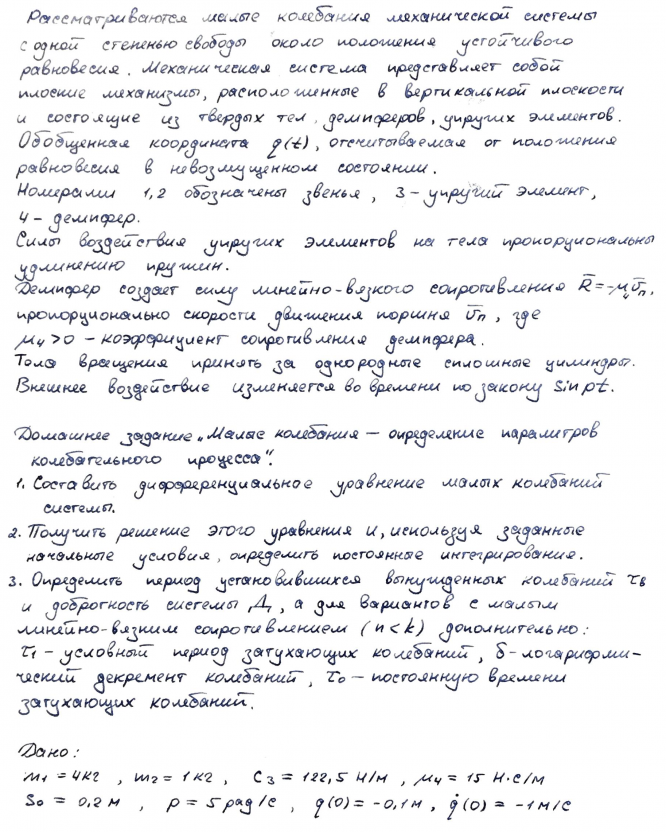 Рассматриваются малые колебания механической системы
с одной степенью свободы около положения устойчивого
равновесия. Механическая система представляет собой
плоские механизмы, расположенные в вертикальной плоскости
и состоящие из твердых тел, демпферов, упругих элементов.
Обобщенная координата q(t), отсчитываемая от положения
равновесия в невозмущенном состоянии.
Номерами 1,2 обозначены звенья, 3 - упругий элемент,
4 - демпфер.
Силы воздействия упругих элементов на тела пропорциональны
удлинению пружин.
Демпфер создает силу линейно-вязкого сопротивления R̄ = -μ₄ῡп,
пропорционально скорости движения поршня ῡп, где
μ₄ > 0 - коэффициент сопротивления демпфера.
Тела вращения принять за однородные сплошные цилиндры.
Внешнее воздействие изменяется во времени по закону Sin pt.
Домашнее задание „Малые колебания — определение параметров
колебательного процесса".
1. Составить дифференциальное уравнение малых колебаний
системы.
2. Получить решение этого уравнения и, используя заданные
начальные условия, определить постоянные интегрирования.
3. Определить период установившихся вынужденных колебаний τв
и добротность системы Д, а для вариантов с малым
линейно-вязким сопротивлением (n < k) дополнительно:
τ₁ - условный период затухающих колебаний, δ - логарифми-
ческий декремент колебаний, τ₀ - постоянную времени
затухающих колебаний.
Дано:
m₁ = 4 кг , m₂ = 1 кг , C₃ = 122,5 Н/м , μ₄ = 15 Н·с/м
S₀ = 0,2 м , p = 5 рад/с , q(0) = -0,1 м , q̇(0) = -1 м/с